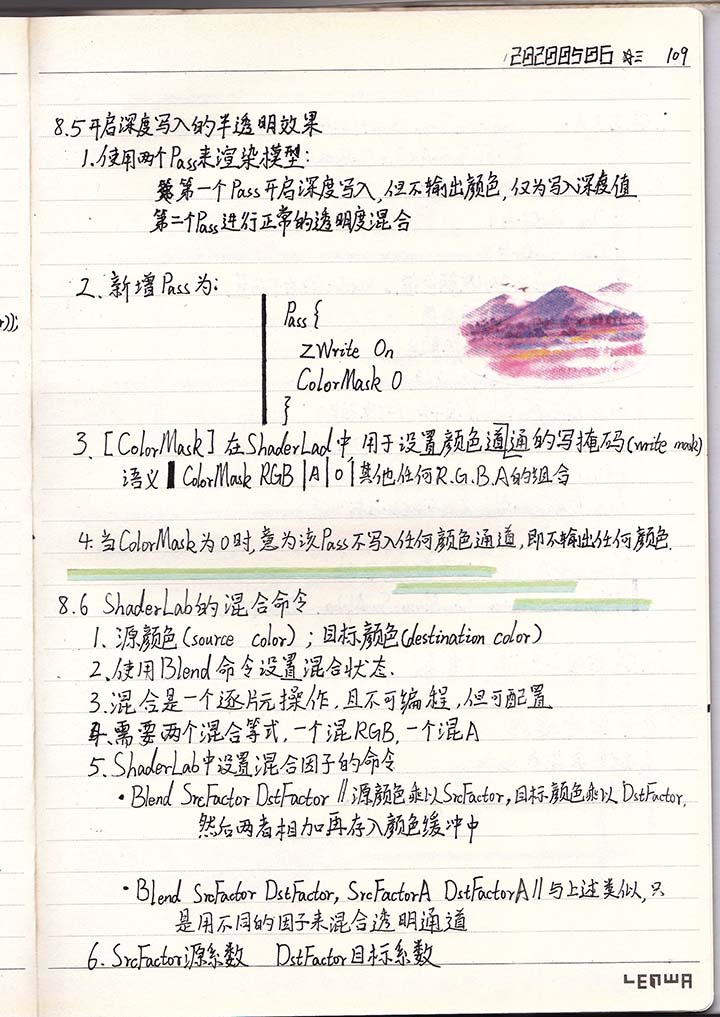 20200506 周三 109
8.5 开启深度写入的半透明效果
1.使用两个Pass来渲染模型:
第一个Pass开启深度写入,但不输出颜色,仅为写入深度值
第二个Pass进行正常的透明度混合
2.新增Pass为:
r));
Pass{
ZWrite On
ColorMask 0
}
3.[ColorMask]在ShaderLad中,用于设置颜色道通的写掩码(write mask)
语义 ColorMask RGB|A|0|其他任何R.G.B.A的组合
4.当ColorMask为0时,意为该Pass不写入任何颜色通道,即不输出任何颜色.
8.6 ShaderLab的混合命令
1.源颜色(source color);目标颜色(destination color)
2.使用Blend命令设置混合状态.
3.混合是一个逐片元操作,且不可编程,但可配置
4.需要两个混合等式,一个混RGB,一个混A
5.ShaderLab中设置混合因子的命令
·Blend SrcFactor DstFactor //源颜色乘以SrcFactor,目标颜色乘以DstFactor,
然后两者相加再存入颜色缓冲中
·Blend SrcFactor DstFactor, SrcFactorA DstFactorA//与上述类似,只
是用不同的因子来混合透明通道
6.SrcFactor源系数 DstFactor目标系数
LENWA